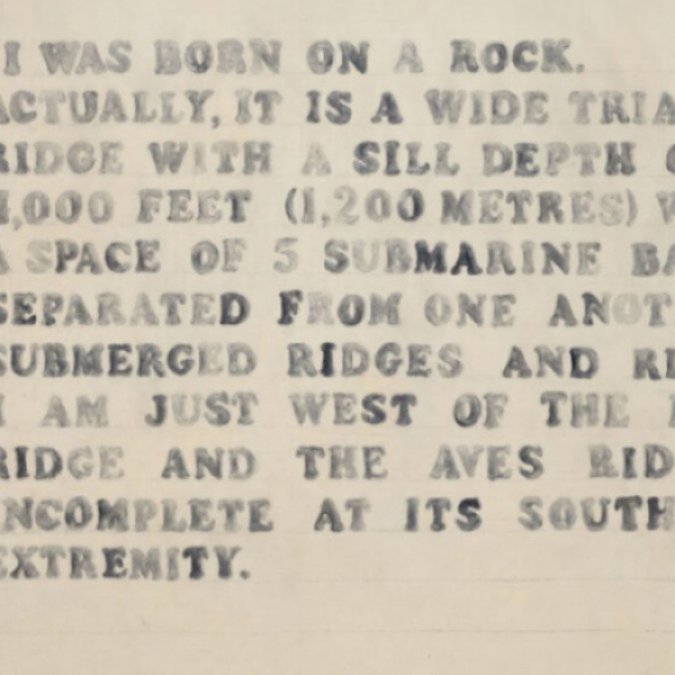 I WAS BORN ON A ROCK.
ACTUALLY, IT IS A WIDE TRIA
RIDGE WITH A SILL DEPTH
,000 FEET (1,200 METRES)
A SPACE OF 5 SUBMARINE BA
SEPARATED FROM ONE ANOT
SUBMERGED RIDGES AND RI
I AM JUST WEST OF THE
RIDGE AND THE AVES RID
INCOMPLETE AT ITS SOUTH
EXTREMITY.